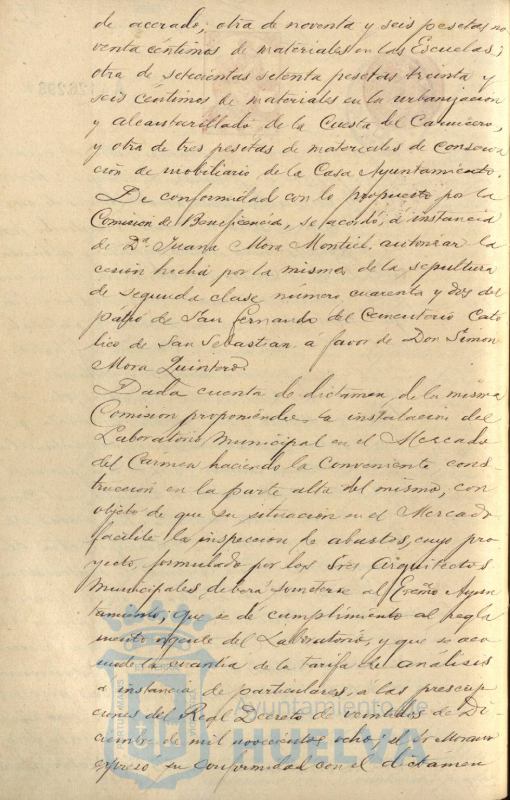 de acerado; otra de noventa y seis pesetas no
venta céntimos de materiales en las Escuelas;
otra de setecientas setenta pesetas treinta y
seis céntimos de materiales en la urbanización
y alcantarillado de la Cuesta del Carnicero,
y otra de tres pesetas de materiales de conserva
ción de mobiliario de la Casa Ayuntamiento.
De conformidad con lo propuesto por la
Comision de Beneficencia, se acordó, á instancia
de Dª. Juana Mora Montiel, autorizar la
cesión hecha por la misma de la sepultura
de segunda clase número cuarenta y dos del
patio de San Fernando del Cementerio Cató
lico de San Sebastian a favor de Don Simon
Mora Quintero.
Dada cuenta de dictámen de la misma
Comision proponiendo la instalación del
Laboratorio Municipal en el Mercado
del Carmen haciendo la conveniente cons-
trucción en la parte alta del mismo, con
objeto de que su situación en el Mercado
facilite la inspección de abastos, cuyo pro
yecto, formulado por los Sres Arquitectos
Municipales deberá someterse al Excmo Ayun
tamiento; que se dé cumplimiento al regla
mento vigente del Laboratorio, y que se aco
mode la cuantia de la tarifa de análisis
a instancia de particulares, a las prescrip
ciones del Real Decreto de veintidos de Di
ciembre de mil novecientos ocho; el Sr Moreno
expresó su conformidad con el dictámen
Ayuntamiento de
HUELVA